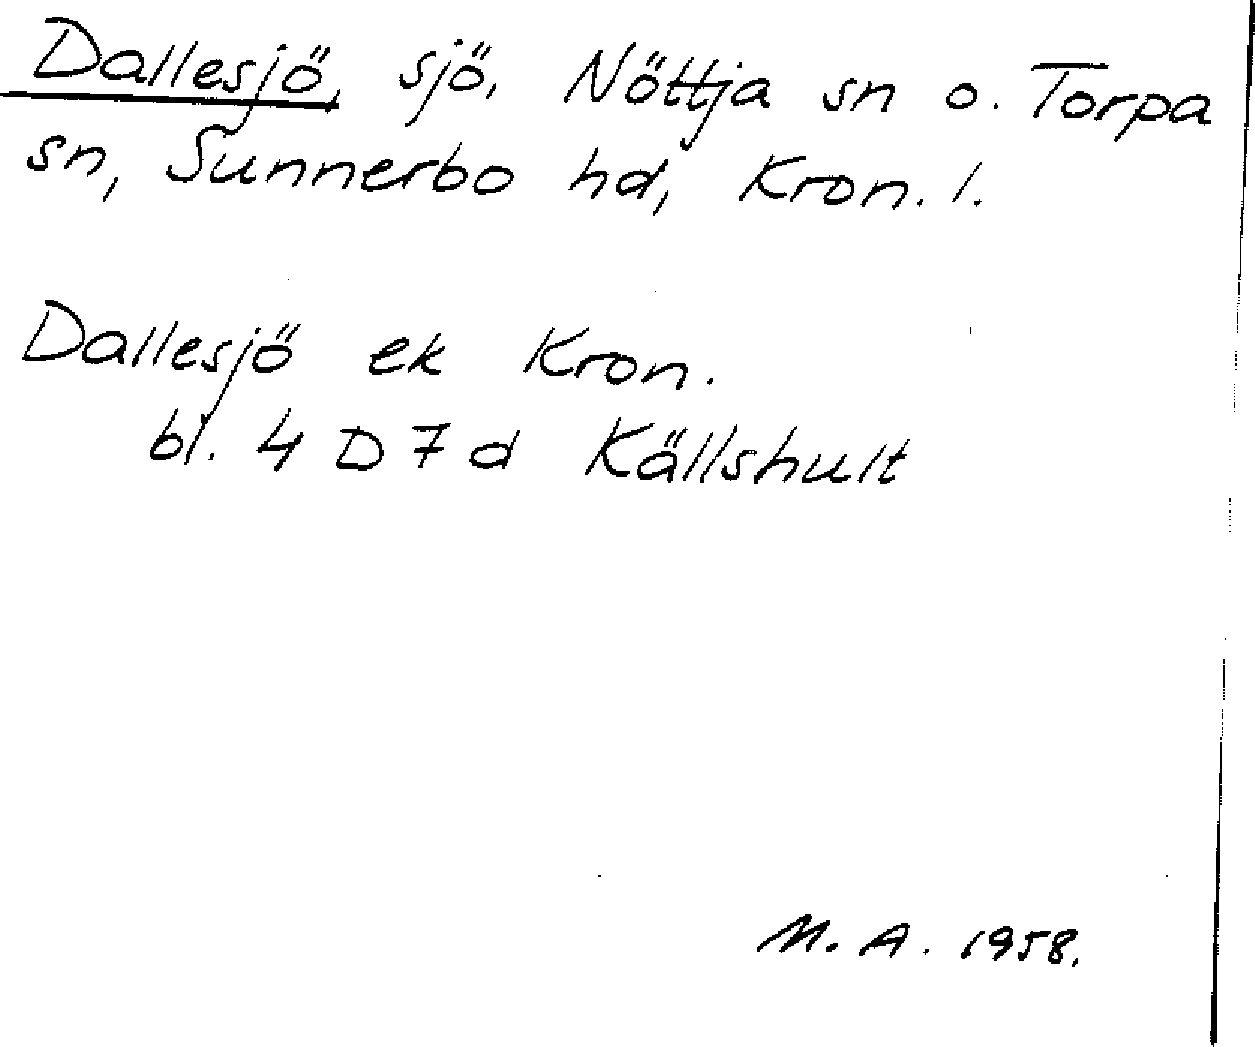 Dallesjö, sjö, Nöttja sn o. Torpa
sn, Sunnerbo hd, Kron. l.
Dallesjö ek Kron.
bl. 4 D 7 d Källshult
M. A. 1958.